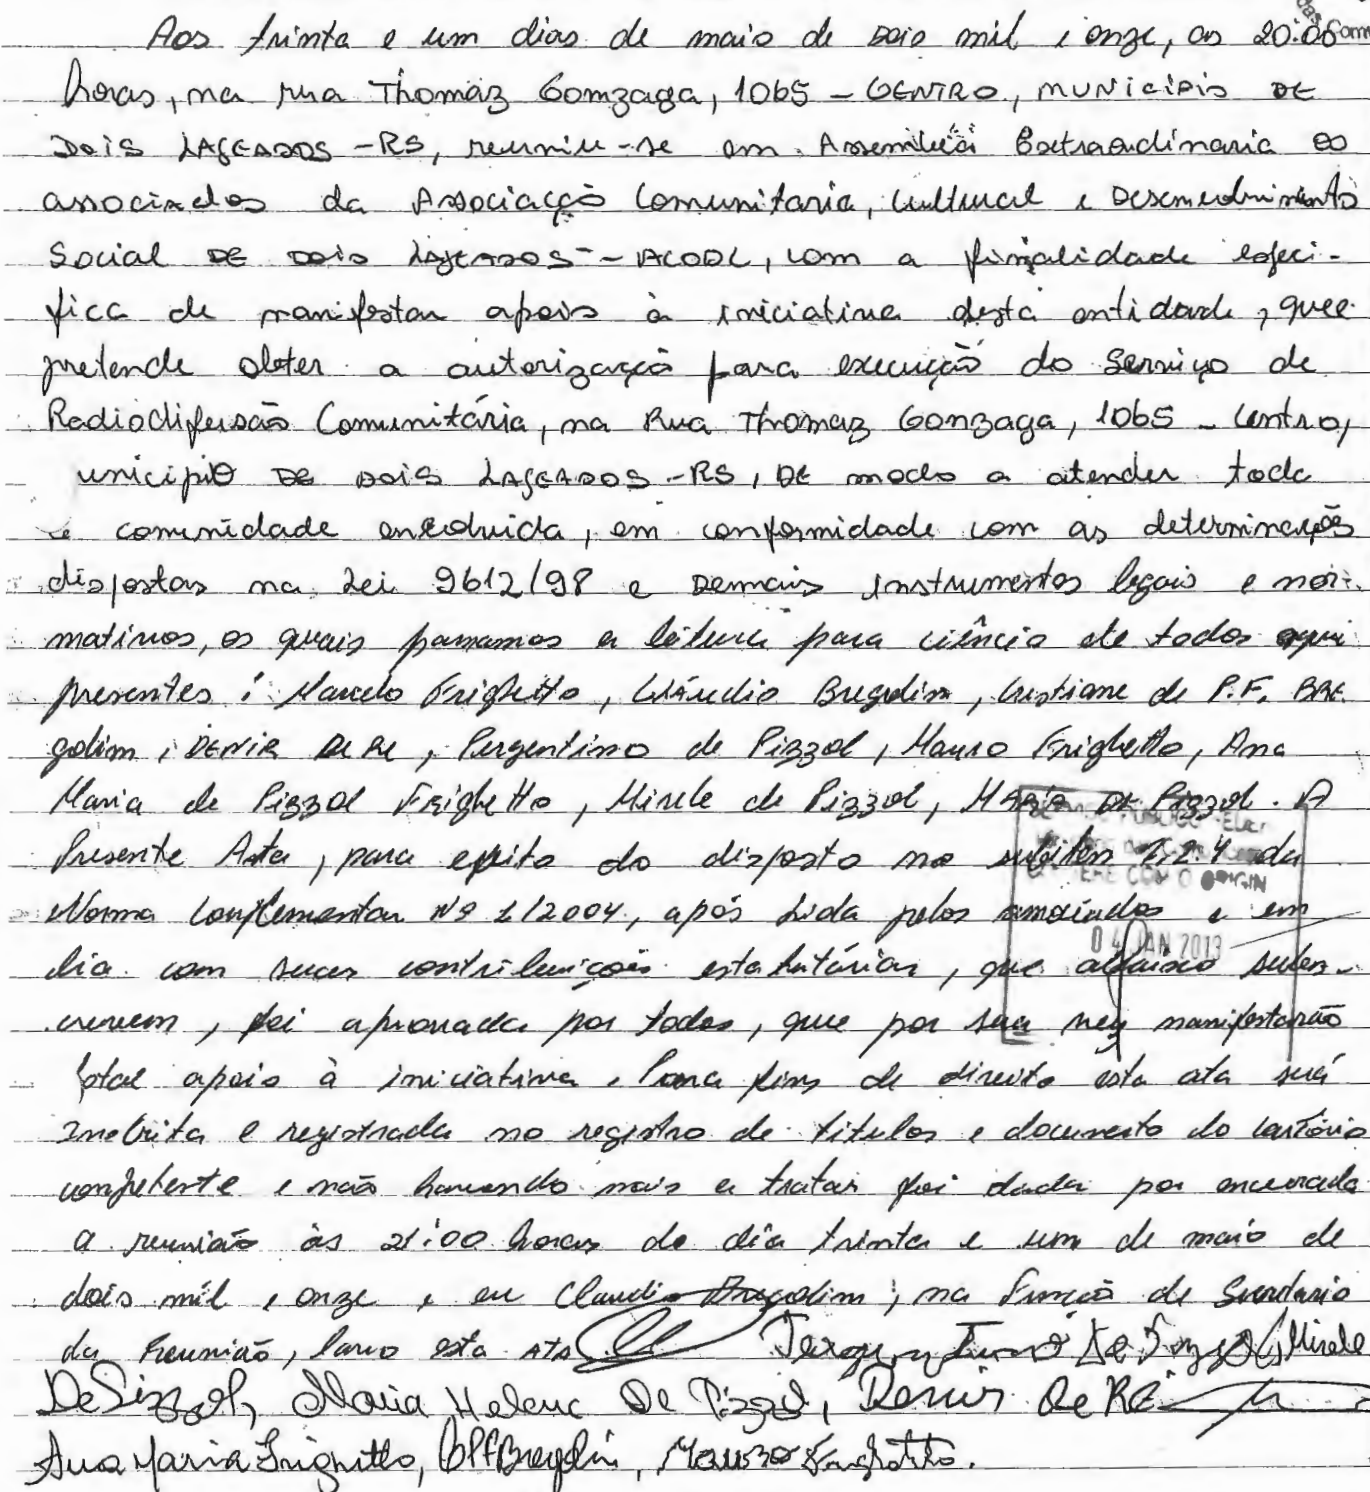 Aos trinta e um dias de maio de dois mil e onze, as 20:00
horas, na rua Thomaz Gomzaga, 1065 - CENTRO, MUNICIPIO DE
DOIS LAGEADOS - RS, reuniu-se em Assembleia Extraordinaria os
associados da Associação Comunitaria, Cultural e Desenvolvimento
Social DE DOIS LAGEADOS - ACODL, com a finalidade especi-
fica de manifestar apoio à iniciativa desta entidade, que
pretende obter a autorização para execução do Serviço de
Radiodifusão Comunitária, na Rua Thomaz Gonzaga, 1065 - Centro,
unicipio DE DOIS LAGEADOS - RS, DE modo a atender toda
a comunidade envolvida, em conformidade com as determinações
dispostas na Lei 9612/98 e Demais instrumentos legais e nor-
mativos, os quais passamos a leitura para ciência de todos aqui
presentes: Marcelo Frighetto, Cláudio Bregolim, Cristiane de P.F. BRE
golim, DENIR DE RE, Pergentino de Pizzol, Mauro Frighetto, Ana
Maria de Pizzol Frighetto, Mirele de Pizzol, MARIA DE Pizzol. A
Presente Ata, para efeito do disposto no subitem 7.2.4 da
Norma Complementar Nº 1/2004, após Lida pelos associados e em
dia com suas contribuições estatutárias, que abaixo subs-
crevem, foi aprovada por todos, que por sua vez manifestarão
total apoio à iniciativa. Para fins de direito esta ata será
Inscrita e registrada no registro de titulos e documento do cartório
competente e não havendo mais a tratar foi dada por encerrada
a reunião às 21:00 horas do dia trinta e um de maio de
dois mil e onze, eu Claudio Bregolim, na Função de Secretario
da Reunião, lavro esta ATA Pergentino De Pizzol, Mirele
De Pizzol, Maria Helena De Pizzol, Denir De RÉ
Ana Maria Frighetto, CPFBregolin, Mauro Frighetto.
CONFERE COM O ORIGIN
04 JAN 2013